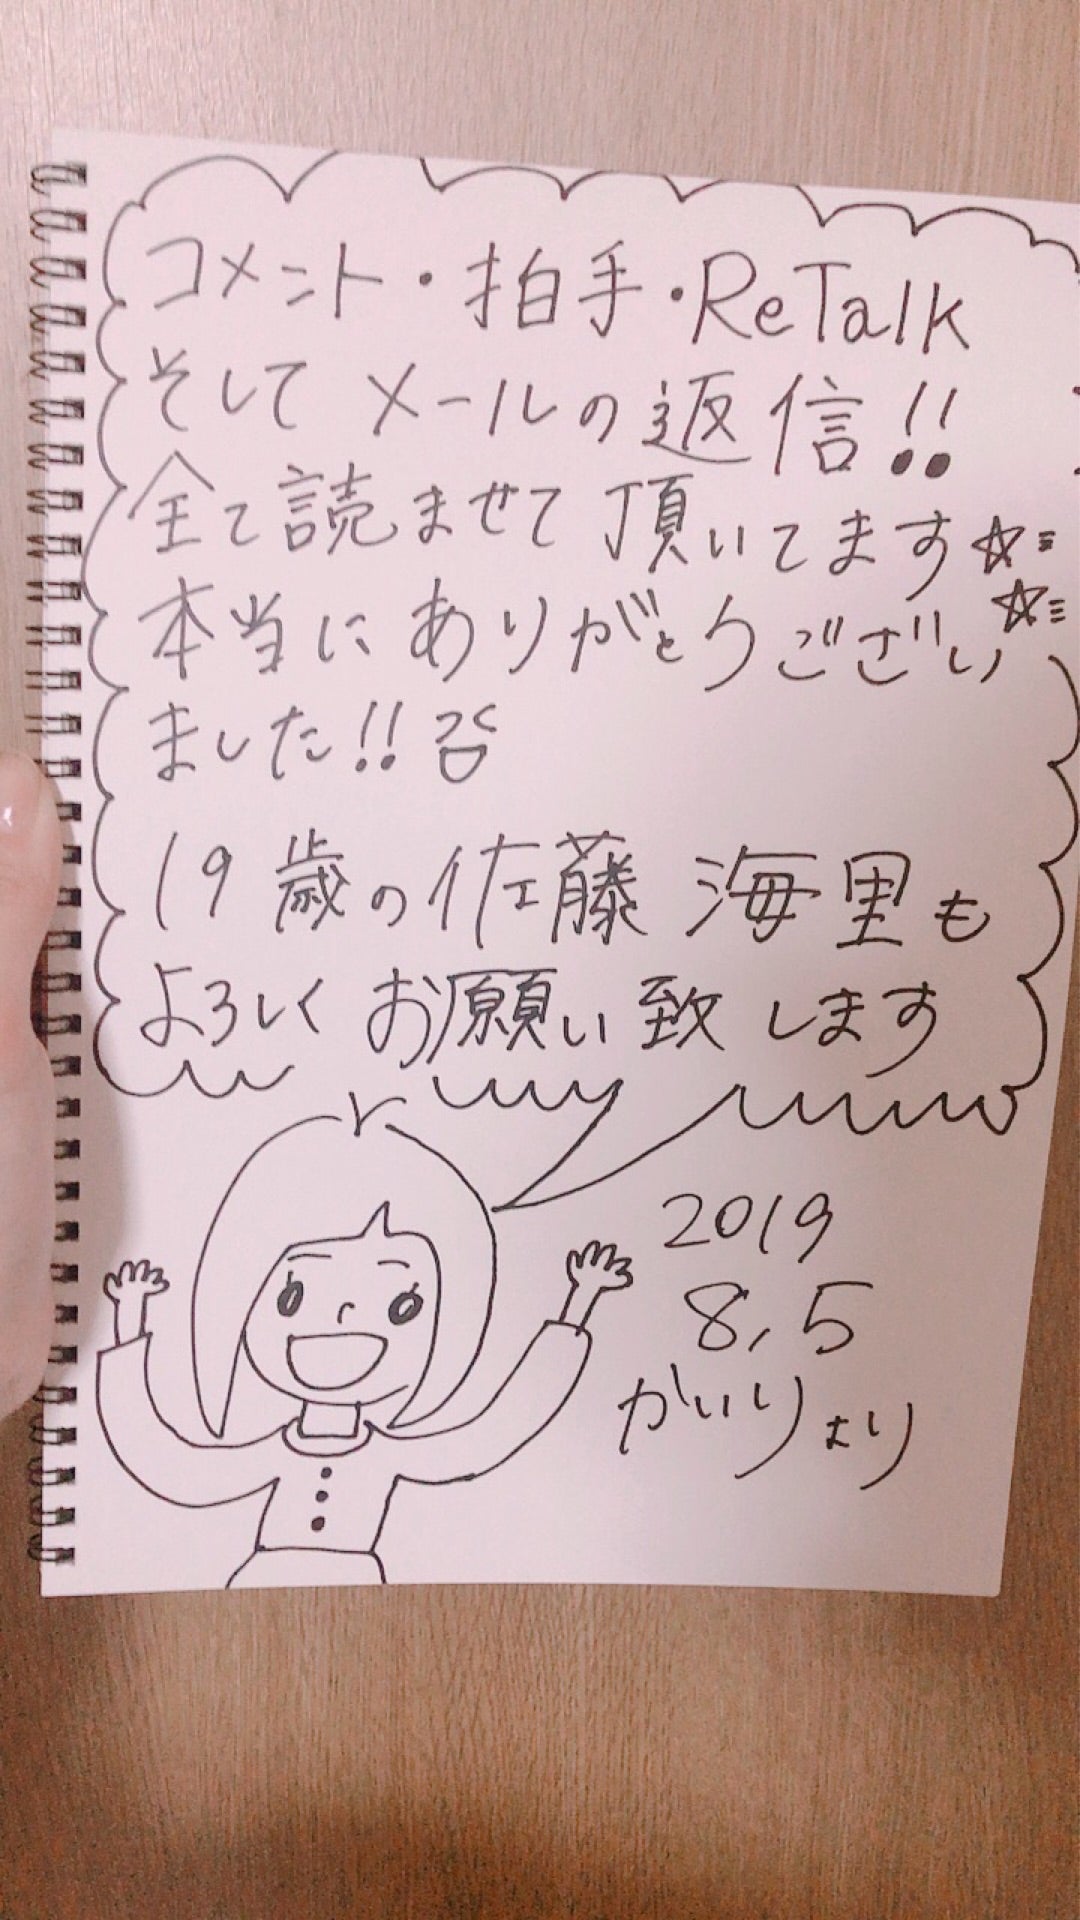 コメント・拍手・ReTalk
そしてメールの返信!!
全て読ませて頂いてます☆
本当にありがとうござい☆
ました!!
19歳の佐藤海里も
よろしくお願い致します
2019
8,5
かいりより